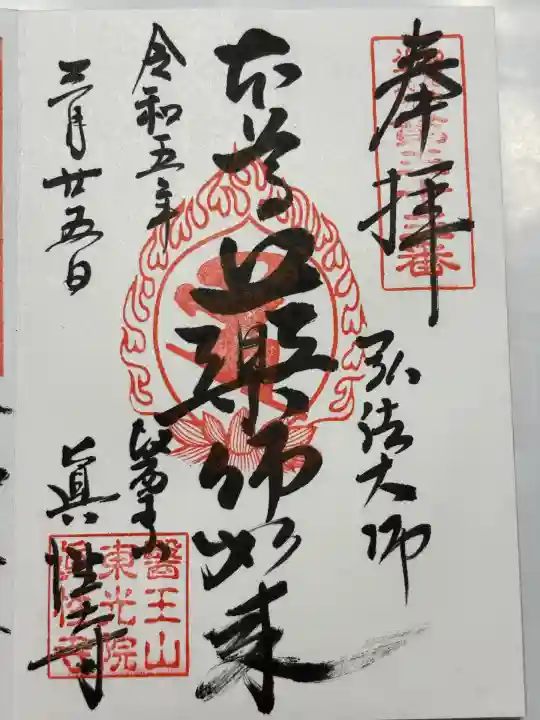 奉拝
弘法大師
本尊薬師如来
令和五年
三月廿五日
醫王山
眞性寺
醫王山
東光院
眞性寺